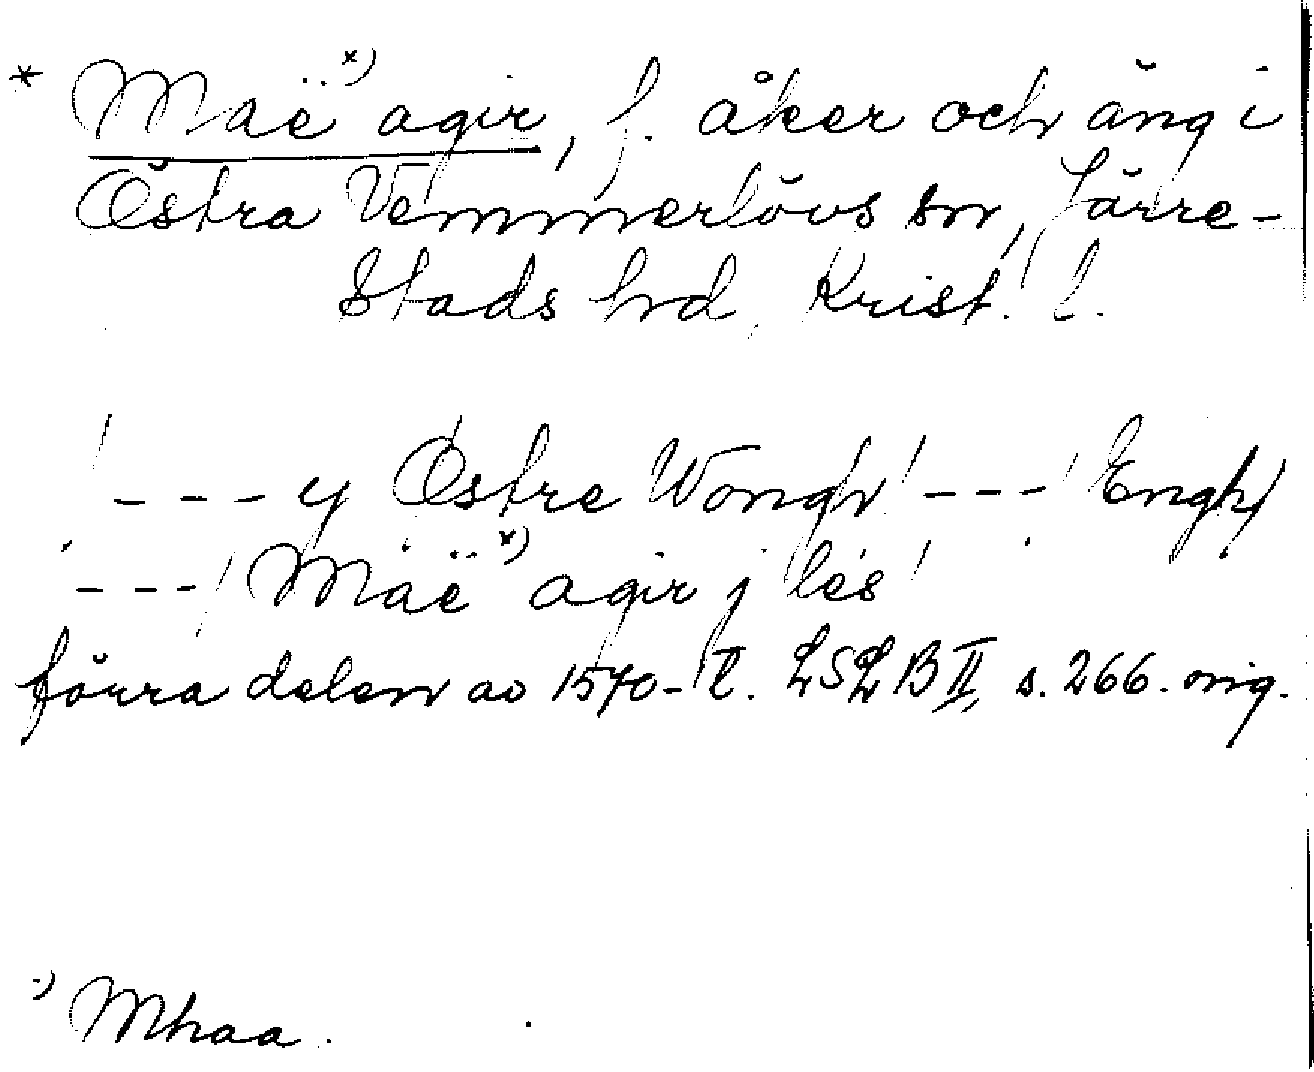 * Maë x) agir, f. åker och äng i
Östra Vemmerlövs sn, Järre-
stads hd, Krist. l.
/ - - - y Østre Wongh / - - - / Engh/
- - - / Maë x) agir j lés /
förra delen av 1570-t. LSLB II, s. 266. orig.
x) Mhaa.